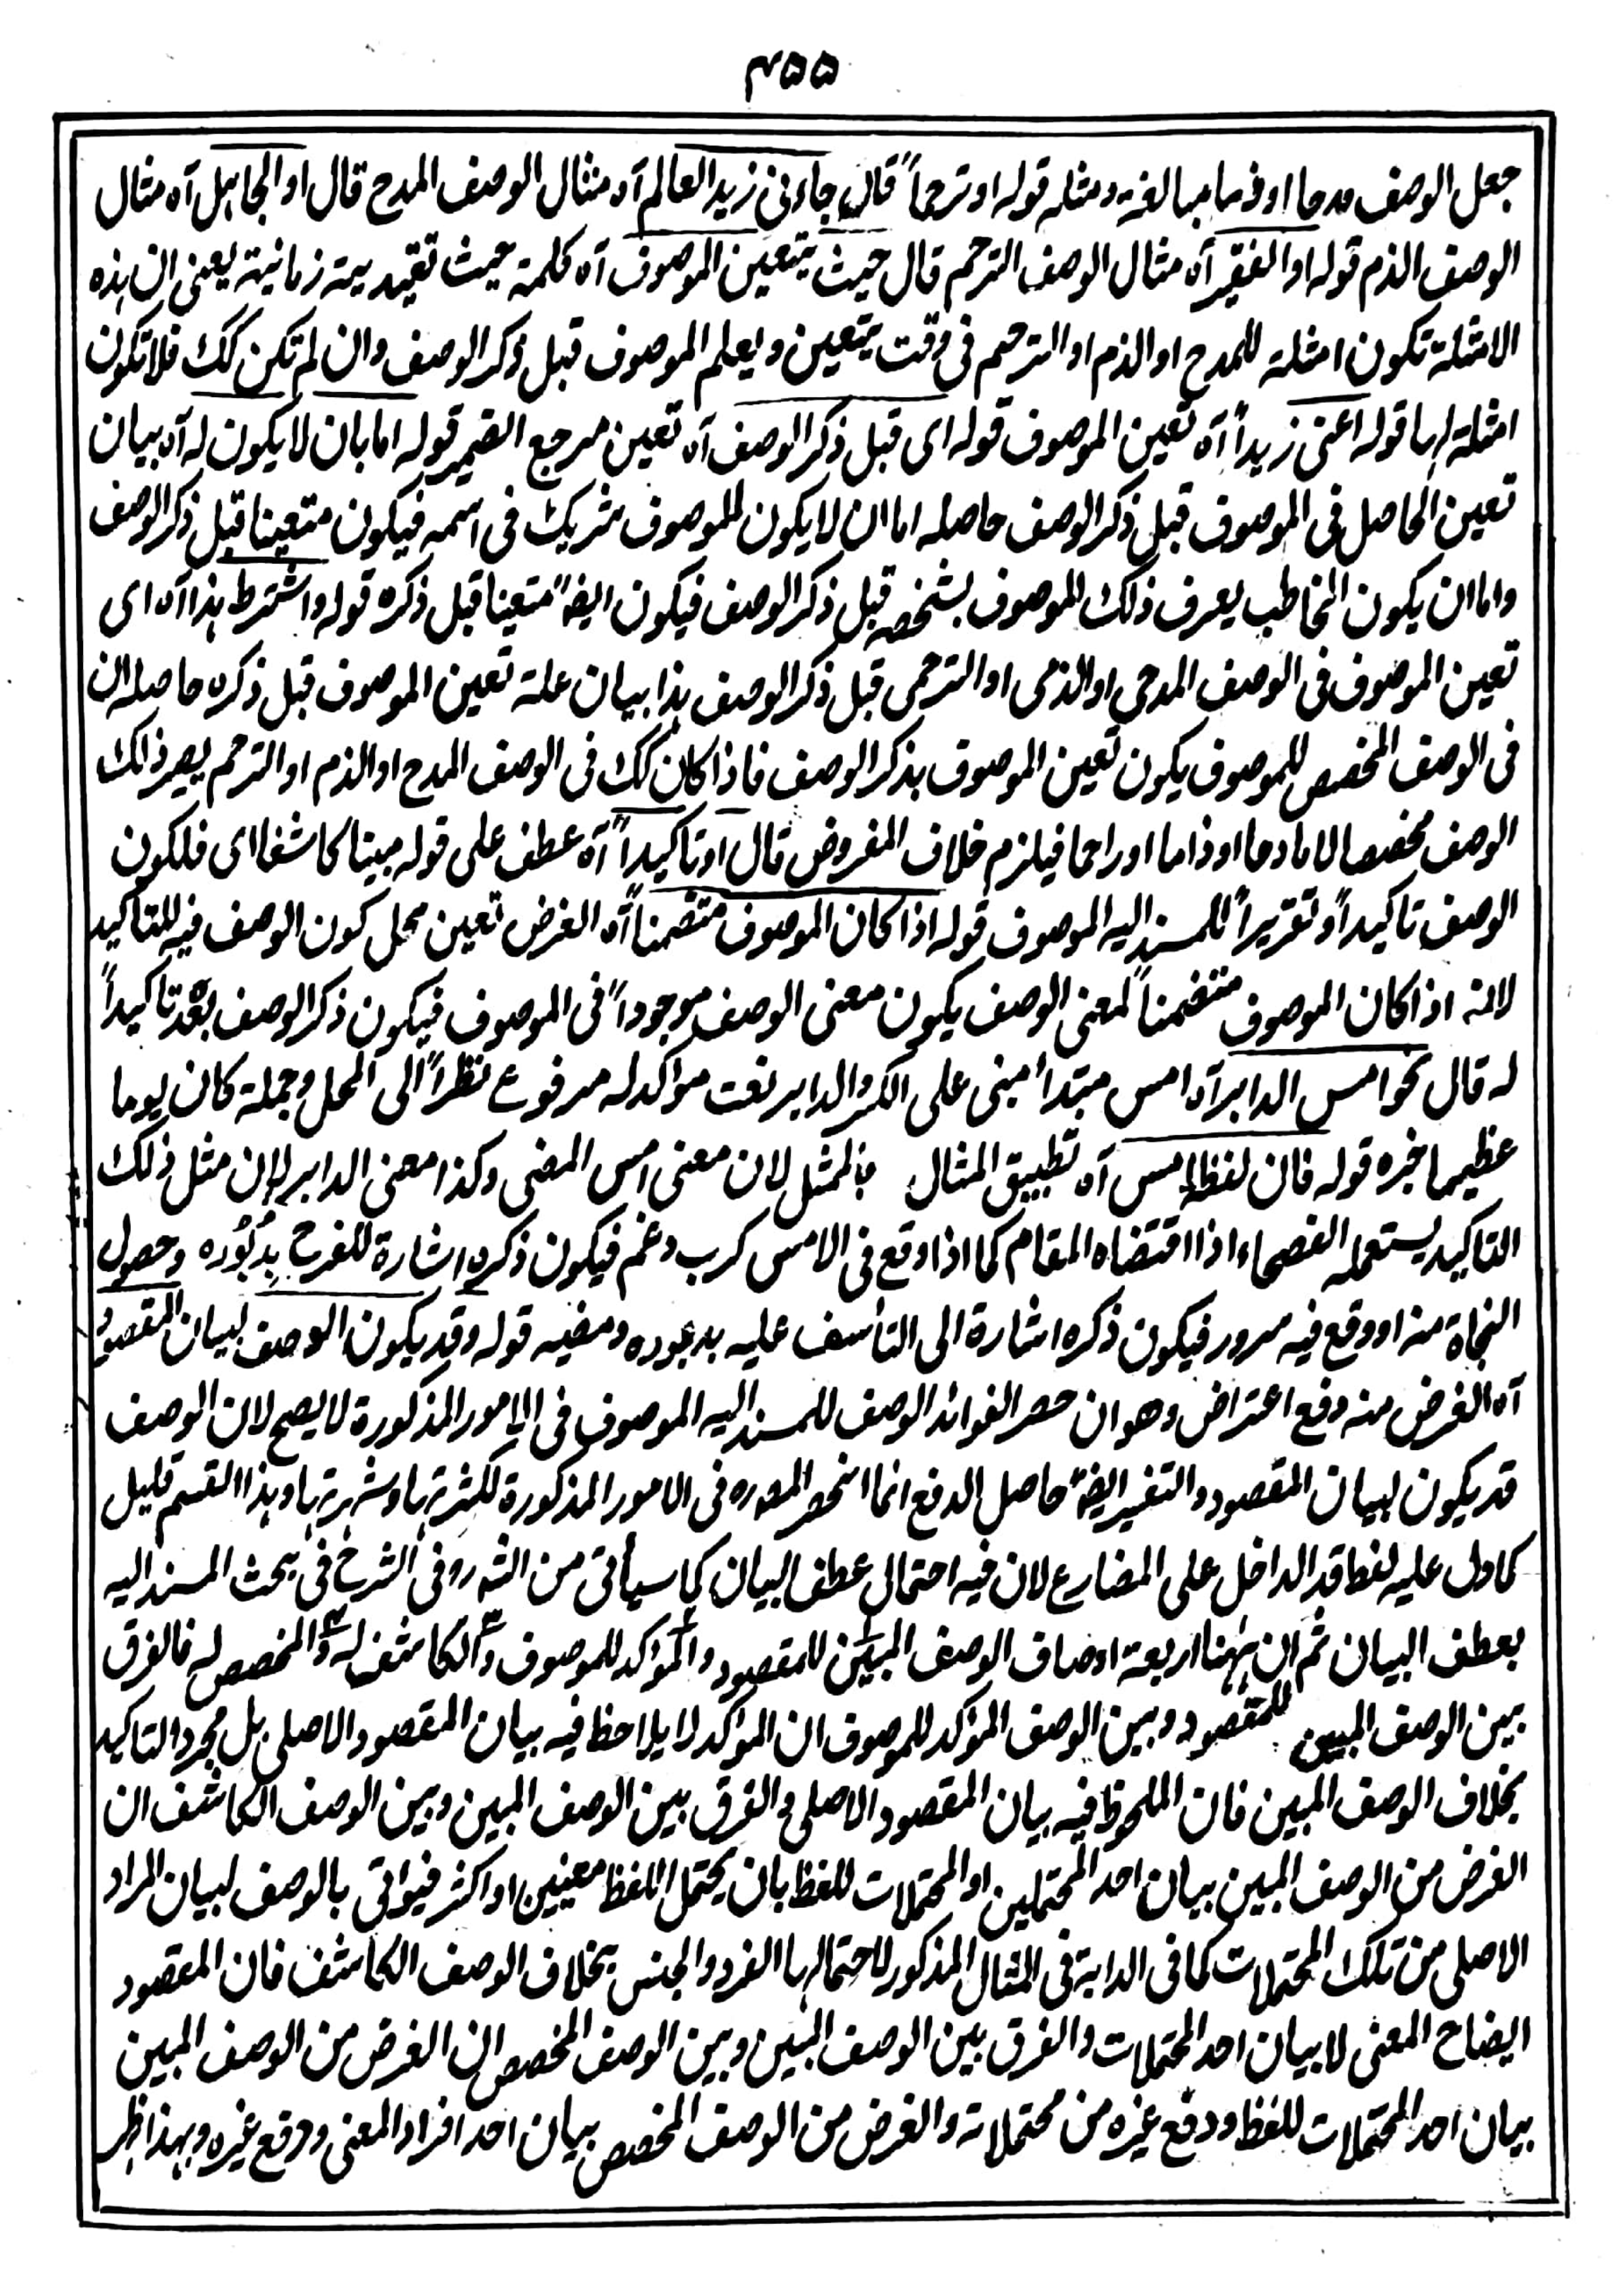 ۴۵۵
جعل الوصف مدحا او ذما مبالغة ومثله قوله او ترحماً قال جاءنی زید العالم آه مثال الوصف المدح قال او الجاهل آه مثال
الوصف الذم قوله او الفقیر آه مثال الوصف الترحم قال حیث یتعین الموصوف آه کلمة حیث تقییدیة زمانیة یعنی ان هذه
الامثلة تکون امثلة للمدح او الذم او الترحم فی وقت یتعین ویعلم الموصوف قبل ذکر الوصف وان لم تکن کک فلا تکون
امثلة لها قوله اعنی زیداً آه تعین الموصوف قوله ای قبل ذکر الوصف آه تعین مرجع الضمیر قوله اما بان لا یکون له آه بیان
تعین الحاصل فی الموصوف قبل ذکر الوصف حاصله اما ان لا یکون للموصوف شریک فی اسمه فیکون متعینا قبل ذکر الوصف
واما ان یکون المخاطب یعرف ذلک الموصوف بشخصه قبل ذکر الوصف فیکون ایضاً متعینا قبل ذکره قوله واشترط هذا آه ای
تعین الموصوف فی الوصف المدحی او الذمی او الترحمی قبل ذکر الوصف هذا بیان علة تعین الموصوف قبل ذکره حاصله ان
فی الوصف المخصص للموصوف یکون تعین الموصوف بذکر الوصف فاذا کان کک فی الوصف المدح او الذم او الترحم یصیر ذلک
الوصف مخصصا لا مادحا او ذاما او راحما فیلزم خلاف المفروض قال او تاکیداً آه عطف علی قوله مبینا کاشفا ای فلکون
الوصف تاکیداً وتقریراً للمسند الیه الموصوف قوله اذا کان الموصوف متضمناً آه الغرض تعین محل کون الوصف فیه للتاکید
لانه اذا کان الموصوف متضمناً لمعنی الوصف یکون معنی الوصف موجوداً فی الموصوف فیکون ذکر الوصف بعده تاکیداً
له قال نحو امس الدابر آه امس مبتدأ مبنی علی الکسر والدابر نعت مؤکد له مرفوع نظراً الی المحل وجملة کان یوما
عظیما خبره قوله فان لفظ امس آه تطبیق المثال بالممثل لان معنی امس المضی وکذا معنی الدابر لان مثل ذلک
التاکید یستعمله الفصحاء اذا اقتضاه المقام کما اذا وقع فی الامس کرب وغم فیکون ذکره اشارة للفرح بِدُبُوره وحصول
النجاة منه او وقع فیه سرور فیکون ذکره اشارة الی التأسف علیه بدبوره ومضیه قوله وقد یکون الوصف لبیان المقصود
آه الغرض منه دفع اعتراض وهو ان حصر الفوائد الوصف للمسند الیه الموصوف فی الامور المذکورة لا یصح لان الوصف
قد یکون لبیان المقصود والتفسیر ایضاً حاصل الدفع انما انحصر المصره فی الامور المذکورة لکثرتها وشهرتها وهذا القسم قلیل
کما دل علیه لفظ قد الداخل علی المضارع لان فیه احتمال عطف البیان کما سیأتی من الشه رو فی الشرح فی بحث المسند الیه
بعطف البیان ثم ان ههنا اربعة اوصاف الوصف المبین للمقصود والمؤکد للموصوف والکاشف له والمخصص له فالفرق
بین الوصف المبین للمقصود وبین الوصف المؤکد للموصوف ان المؤکد لا یلاحظ فیه بیان المقصود الاصلی بل مجرد التاکید
بخلاف الوصف المبین فان الملحوظ فیه بیان المقصود الاصلی والفرق بین الوصف المبین وبین الوصف الکاشف ان
الغرض من الوصف المبین بیان احد المحتملین او المحتملات للفظ بان یحتمل اللفظ معنیین او اکثر فیؤتی بالوصف لبیان المراد
الاصلی من تلک المحتملات کما فی الدابة فی المثال المذکور لاحتمالها الفرد والجنس بخلاف الوصف الکاشف فان المقصود
ایضاح المعنی لا بیان احد المحتملات والفرق بین الوصف المبین وبین الوصف المخصص ان الغرض من الوصف المبین
بیان احد المحتملات للفظ ودفع غیره من محتملاته والغرض من الوصف المخصص بیان احد افراد المعنی ودفع غیره وبهذا ظهر